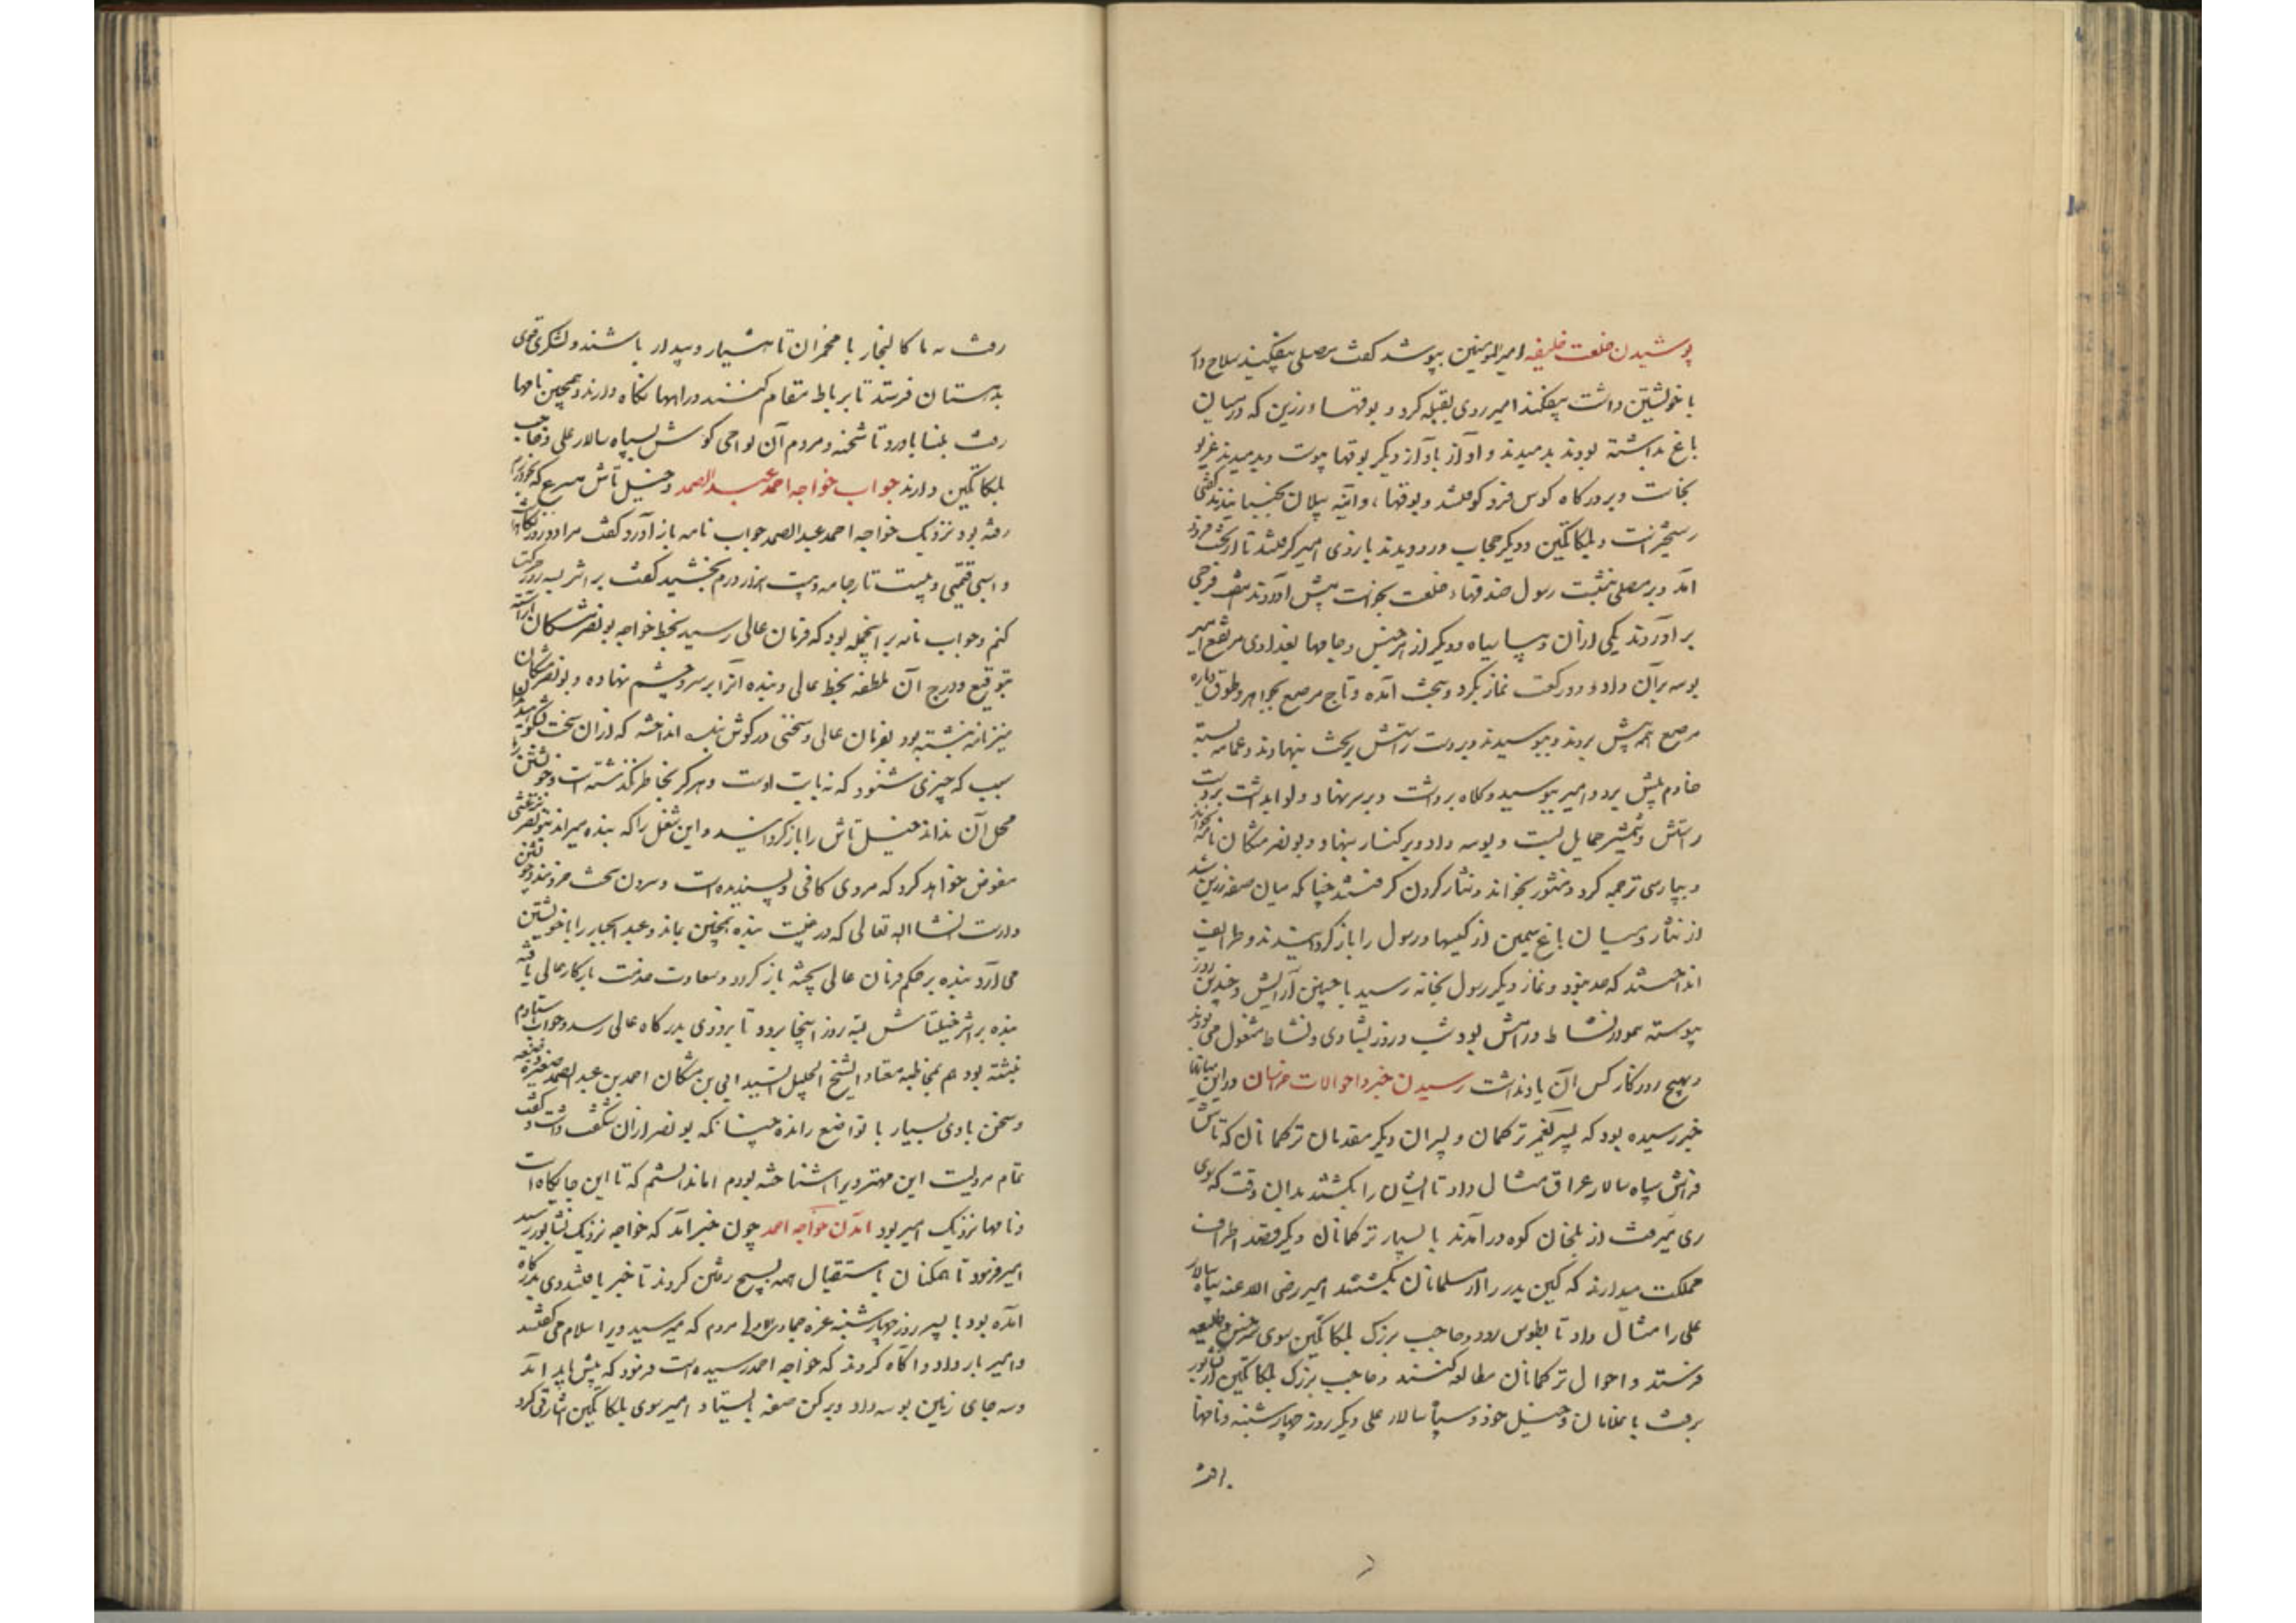 پوشیدن خلعت خلیفه امیرالمومنین بپوشد گفت مصلی بیفکنید سلاح دار
با خویشتن داشت بیفکند امیر روی بقبله کرد و بوقها و زرین که در میان
باغ بداشته بودند بدمیدند و آواز باواز دیگر بوقها پیوست و بدمیدند غریو
بخاست و بر درگاه کوس فرو کوفتند و بوقها و آینه پیلان بجنبانیدند گفتی
رستخیز است و بلکاتکین و دیگر حجاب در دویدند بازوی امیر گرفتند تا از تخت فرود
آمد و بر مصلی بنشست رسول صندوقها خلعت بخواست پیش آوردند هفت فرجی
برآوردند یکی از آن دیبا سیاه و دیگر از هر جنس و جامها بغدادی مرتفع امیر
بوسه بر آن داد و دو رکعت نماز بکرد و بتخت آمده و تاج مرصع بجواهر و طوق و یاره
مرصع همه پیش بردند و ببوسیدند و بر دست راستش بر تخت بنهادند و عمامه بسته
خادم پیش برد و امیر ببوسید و کلاه برداشت و بر سر نهاد و لوا بداشت بر دست
راستش و شمشیر حمایل بست و بوسه داد و بر کنار بنهاد و بونصر مشکان نامه بخواند
و بپارسی ترجمه کرد و منثور بخواند و نثار کردن گرفتند چنانکه میان صفه زرین شد
از نثار و میان باغ سیمین از کیسها و رسول را باز گردانیدند و طرایف
انداختند که حد نبود و نماز دیگر رسول بخانه رسید با چنین آرایش و چندین روز
پیوسته نشاط و رامش بود شب و روز بشادی و نشاط مشغول می بودند
و بهیچ روزگار کس آن یاد نداشت رسیدن خبر و احوالات خراسان و در این میانها
خبر رسیده بود که پسر یغمر ترکمان و پسران دیگر مقدمان ترکمانان که تاش
فراش سپاه سالار عراق مثال داد تا ایشان را بکشتند بدان وقت که سوی
ری میرفت از بلخان کوه درآمدند با بسیار ترکمانان دیگر و قصد اطراف
مملکت میدارند که کین پدر را از مسلمانان بکشند امیر رضی الله عنه سپاه سالار
علی را مثال داد تا بطوس رود و حاجب بزرگ بلکاتکین سوی سرخس و طلیعه
فرستد و احوال ترکمانان مطالعه کنند و حاجب بزرگ بلکاتکین از نشابور
برفت با غلامان و خیل خود و سپاه سالار علی دیگر روز چهارشنبه و نامها
رفت
رفت به باکالیجار با مجمزان تا هشیار و بیدار باشند و لشکری قوی
بدهستان فرستد تا برباط مقام کنند و راهها نگاه دارند و همچنین نامها
رفت بنسا باورد تا شحنه و مردم آن نواحی گوش بسپاه سالار علی و حاجب
بلکاتکین دارند جواب خواجه احمد عبدالصمد و خیل تاش مسرع که بخوارزم
رفته بود نزدیک خواجه احمد عبدالصمد جواب نامه باز آورد گفت مرا دو روز
و اسبی قیمتی و بیست تا جامه و بیست هزار درم بخشید گفت بر اثر سه روز حرکت
کنم و جواب نامه بر اینجمله بود که فرمان عالی رسید بخط خواجه بونصر مشکان آراسته
بتوقیع و درج آن ملطفه بخط عالی و بنده آنرا بر سر و چشم نهاده و بونصر مشکان
نیز نامه نبشته بود بفرمان عالی و سخنی در گوش بنده انداخته که از آن سخت
سبب که چیزی شنود که نه بابت اوست و هرگز بخاطر نگذشته است و خویشتن را
محل آن نداند خیل تاش را باز گردانید و این شغل را که بنده میراند
مفوض خواهد کرد که مردی کافی و پسندیده است و بیرون سخت خردمند
دارست انشا الله تعالی که در غیبت بنده همچنین بماند و عبدالجبار را با خویشتن
می آرد بنده بر حکم فرمان عالی بجثه باز گردد و سعادت خدمت بارگاه عالی یافته
بنده بر اثر خیلتاش سه روز اینجا برود تا بزودی بدرگاه عالی رسد و جواب
نبشته بود هم بمخاطبه معتاد الشیخ الجلیل السید ابی بن مشکان احمد بن عبدالصمد
و سخن با وی بسیار با تواضع رانده چنانکه بونصر از آن شگفت داشت و گفت
تمام مردیست این مهتر و ویرا شناخته بودم اما ندانستم که تا این جایگاه است
و نامها نزدیک امیر بود آمدن خواجه احمد چون خبر آمد که خواجه نزدیک نشابور رسید
امیر فرمود تا همگنان باستقبال همه بسیج رفتن کردند تا خبر یافتند وی بدرگاه
آمده بود با پسر روز چهارشنبه غره جمادی الاولی مردم که میرسید ویرا سلام می گفتند
و امیر بار داد و آگاه کردند که خواجه احمد رسیده است فرمود که پیش باید آمد
و سه جای زمین بوسه داد و برکن صفه بایستاد و امیر سوی بلکاتکین اشارتی کرد